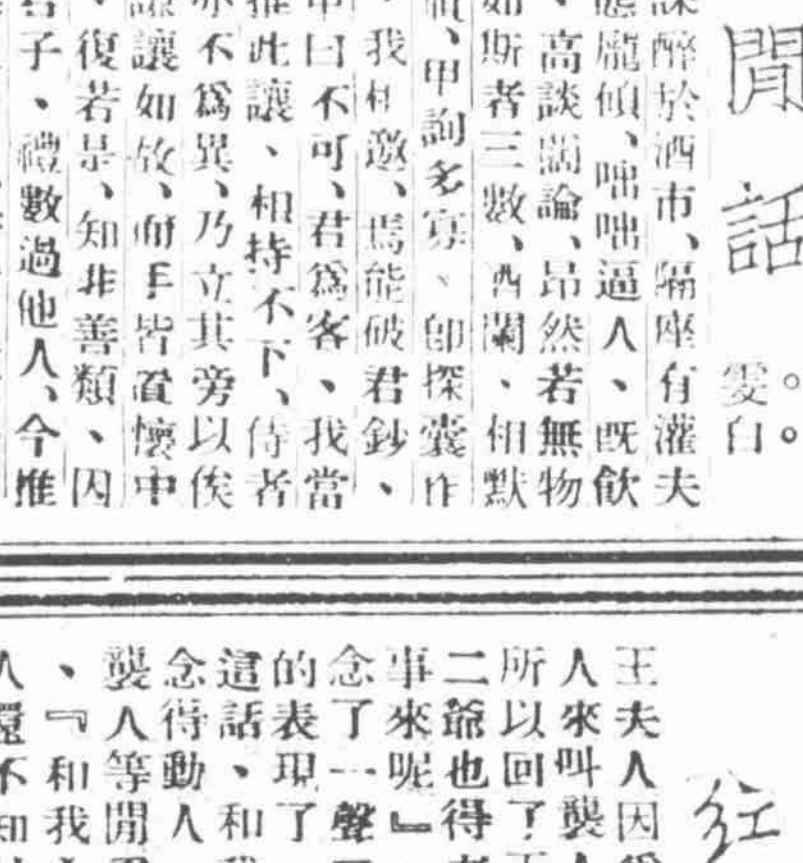 閒話。。
雯白
醉於酒市、隔座有灌夫
態龐傾、咄咄逼人、既飲
、高談闊論、昂然若無物
如斯者三數、酒闌、相默
、甲詢多寡、卽探囊作
、我相邀、焉能破君鈔、
甲曰不可、君爲客、我當
推此讓、相持不下、侍者
亦不爲異、乃立其旁以俟
讓如故、而手皆置懷中
、復若是、知非善類、因
君子、禮數過他人、今惟
紅
王夫人因
人來叫襲人
所以回了王
二爺也得
事來呢』
念了一聲
的表現了
這話、和我
念得動人
襲人等閒
、『和我
人還不知